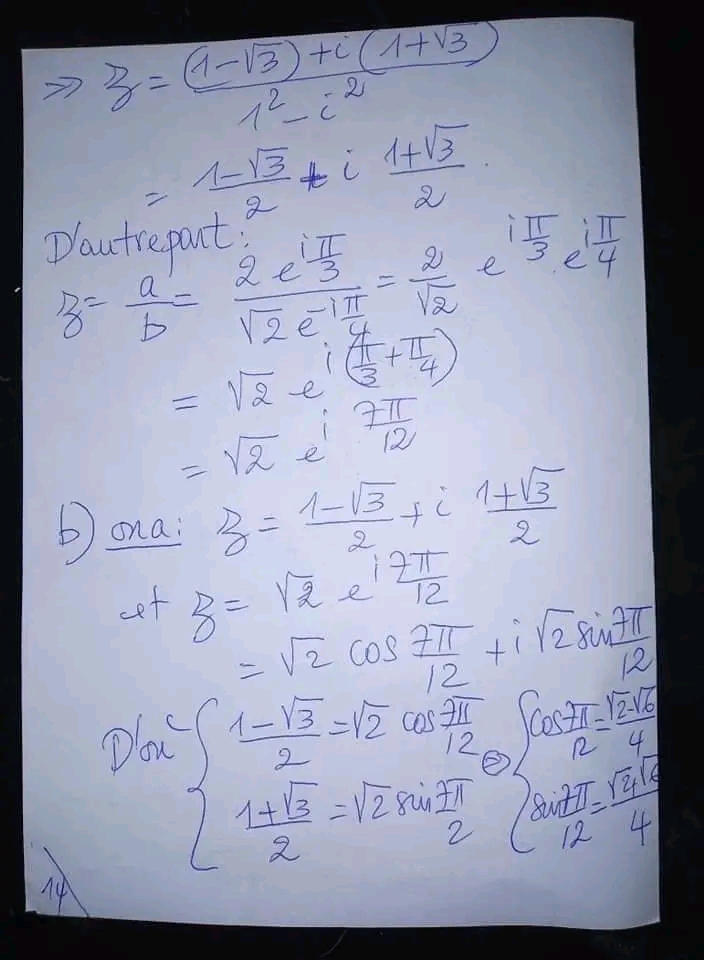 => z = (1-√3)+i(1+√3) / 1²-i²
= 1-√3/2 + i 1+√3/2.
D'autrepart:
z = a/b = 2e^(iπ/3) / √2e^(-iπ/4) = 2/√2 e^(iπ/3) . e^(iπ/4)
= √2 e^(i(π/3+π/4))
= √2 e^(i7π/12)
b) ona: z = 1-√3/2 + i 1+√3/2
et z = √2 e^(i7π/12)
= √2 cos 7π/12 + i√2 sin 7π/12
D'où { 1-√3/2 = √2 cos 7π/12 <=> { cos 7π/12 = √2-√6/4
1+√3/2 = √2 sin 7π/2 sin 7π/12 = √2+√6/4
14